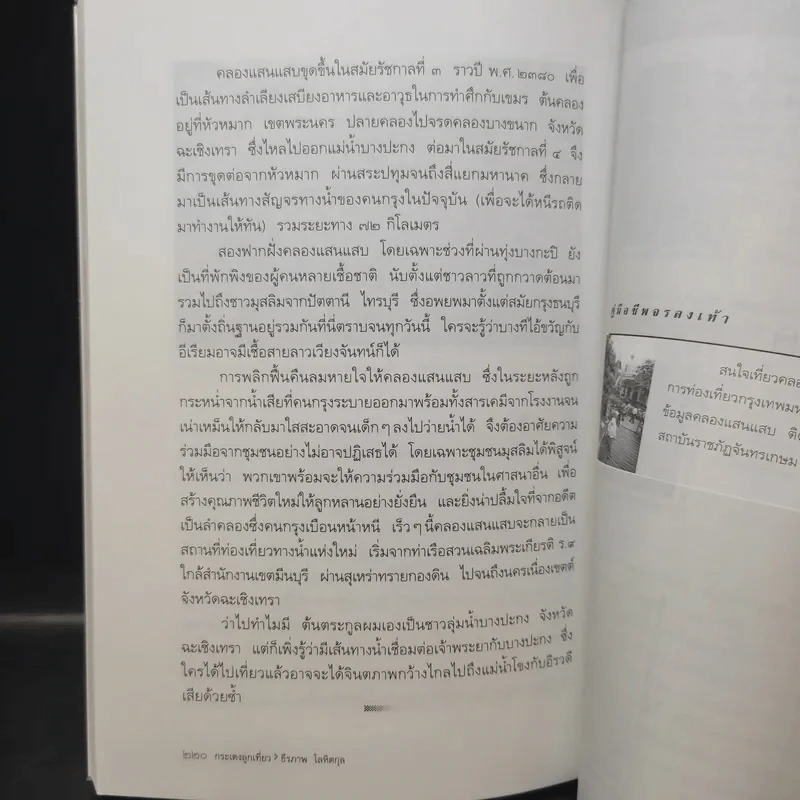 คลองแสนแสบขุดขึ้นในสมัยรัชกาลที่ ๓ ราวปี พ.ศ. ๒๓๘๐ เพื่อ
เป็นเส้นทางลำเลียงเสบียงอาหารและอาวุธในการทำศึกกับเขมร ต้นคลอง
อยู่ที่หัวหมาก เขตพระนคร ปลายคลองไปจรดคลองบางขนาก จังหวัด
ฉะเชิงเทรา ซึ่งไหลไปออกแม่น้ำบางปะกง ต่อมาในสมัยรัชกาลที่ ๔ จึง
มีการขุดต่อจากหัวหมาก ผ่านสระปทุมจนถึงสี่แยกมหานาค ซึ่งกลาย
มาเป็นเส้นทางสัญจรทางน้ำของคนกรุงในปัจจุบัน (เพื่อจะได้หนีรถติด
มาทำงานให้ทัน) รวมระยะทาง ๗๒ กิโลเมตร
สองฟากฝั่งคลองแสนแสบ โดยเฉพาะช่วงที่ผ่านทุ่งบางกะปิ ยัง
เป็นที่พักพิงของผู้คนหลายเชื้อชาติ นับตั้งแต่ชาวลาวที่ถูกกวาดต้อนมา
รวมไปถึงชาวมุสลิมจากปัตตานี ไทรบุรี ซึ่งอพยพมาตั้งแต่สมัยกรุงธนบุรี
ก็มาตั้งถิ่นฐานอยู่รวมกันที่นี่ตราบจนทุกวันนี้ ใครจะรู้ว่าบางทีไอ้ขวัญกับ
อีเรียมอาจมีเชื้อสายลาวเวียงจันทน์ก็ได้
การพลิกฟื้นคืนลมหายใจให้คลองแสนแสบ ซึ่งในระยะหลังถูก
กระหน่ำจากน้ำเสียที่คนกรุงระบายออกมาพร้อมทั้งสารเคมีจากโรงงานจน
เน่าเหม็นให้กลับมาใสสะอาดจนเด็กๆ ลงไปว่ายน้ำได้ จึงต้องอาศัยความ
ร่วมมือจากชุมชนอย่างไม่อาจปฏิเสธได้ โดยเฉพาะชุมชนมุสลิมได้พิสูจน์
ให้เห็นว่า พวกเขาพร้อมจะให้ความร่วมมือกับชุมชนในศาสนาอื่น เพื่อ
สร้างคุณภาพชีวิตใหม่ให้ลูกหลานอย่างยั่งยืน และยิ่งน่าปลื้มใจที่จากอดีต
เป็นลำคลองซึ่งคนกรุงเบือนหน้าหนี เร็วๆ นี้คลองแสนแสบจะกลายเป็น
สถานที่ท่องเที่ยวทางน้ำแห่งใหม่ เริ่มจากท่าเรือสวนเฉลิมพระเกียรติ ร.๙
ใกล้สำนักงานเขตมีนบุรี ผ่านสุเหร่าทรายกองดิน ไปจนถึงนครเนื่องเขตต์
จังหวัดฉะเชิงเทรา
ว่าไปทำไมมี ต้นตระกูลผมเองเป็นชาวลุ่มน้ำบางปะกง จังหวัด
ฉะเชิงเทรา แต่ก็เพิ่งรู้ว่ามีเส้นทางน้ำเชื่อมต่อเจ้าพระยากับบางปะกง ซึ่ง
ใครได้ไปเที่ยวแล้วอาจจะได้จินตภาพกว้างไกลไปถึงแม่น้ำโขงกับอิรวดี
เสียด้วยซ้ำ
๒๒๐ กระเตงลูกเที่ยว > ธีรภาพ โลหิตกุล
คู่มือชีพจรลงเท้า
สนใจเที่ยวคลอ
การท่องเที่ยวกรุงเทพมห
ข้อมูลคลองแสนแสบ ติด
สถาบันราชภัฏจันทรเกษม